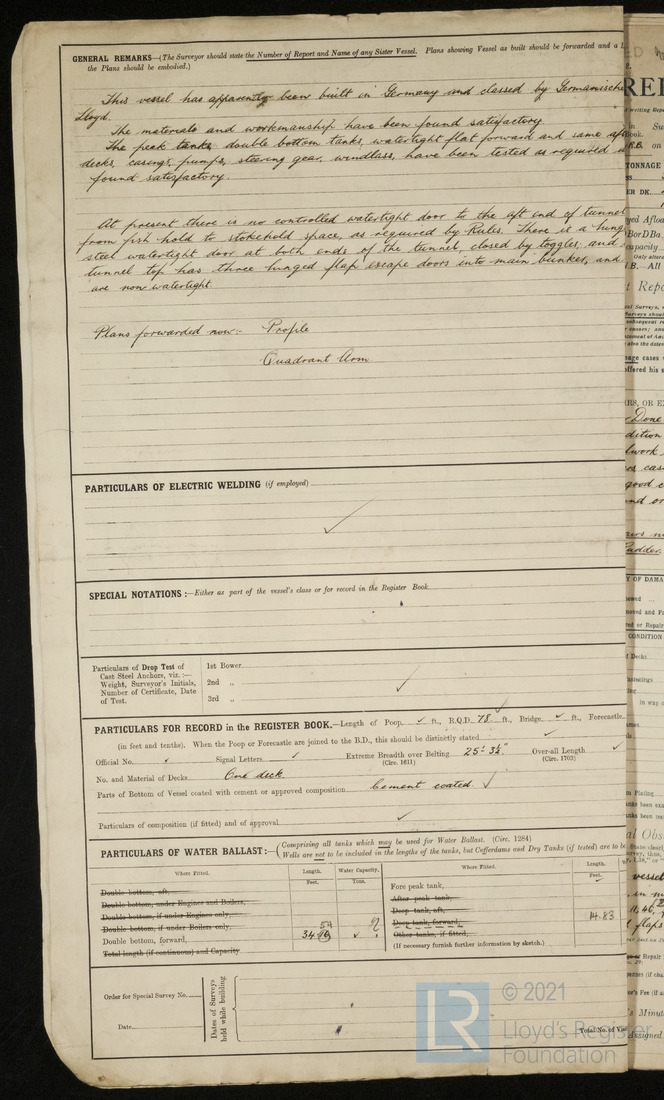 GENERAL REMARKS—(The Surveyor should state the Number of Report and Name of any Sister Vessel. Plans showing Vessel as built should be forwarded and a
the Plans should be embodied.)
This vessel has apparently been built in Germany and classed by Germanische
Lloyd.
The materials and workmanship have been found satisfactory.
The peak tanks, double bottom tanks, watertight flat forward and same aft
decks, casing, pumps, steering gear, windlass, have been tested as required
found satisfactory.
At present there is no controlled watertight door to the aft end of tunnel
from fish hold to stokehold space, as required by Rules. There is a hung
steel watertight door at both ends of the tunnel, closed by toggles, and
tunnel top has three hinged flap escape doors into main bunker, and
are non watertight
Plans forwarded now:- Profile
Quadrant Arm
PARTICULARS OF ELECTRIC WELDING (if employed)
SPECIAL NOTATIONS:—Either as part of the vessel's class or for record in the Register Book
Particulars of Drop Test of
Cast Steel Anchors, viz.:—
Weight, Surveyor's Initials,
Number of Certificate, Date
of Test.
1st Bower
2nd „
3rd „
PARTICULARS FOR RECORD in the REGISTER BOOK.—Length of Poop ✓ ft., R.Q.D. 78 ft., Bridge ✓ ft., Forecastle
(in feet and tenths). When the Poop or Forecastle are joined to the B.D., this should be distinctly stated ✓
Official No. ✓ Signal Letters ✓ Extreme Breadth over Belting 25' 3½" Over-all Length ✓
(Circ. 1611) (Circ. 1703)
No. and Material of Decks One deck
Parts of Bottom of Vessel coated with cement or approved composition Cement coated ✓
Particulars of composition (if fitted) and of approval ✓
PARTICULARS OF WATER BALLAST:—(Comprising all tanks which may be used for Water Ballast. (Circ. 1284)
Wells are not to be included in the lengths of the tanks, but Cofferdams and Dry Tanks (if tested) are to be
Where Fitted. Length. Feet. Water Capacity. Tons.
Double bottom, aft,
Double bottom, under Engines and Boilers,
Double bottom, if under Engines only,
Double bottom, if under Boilers only,
Double bottom, forward,
Total length (if continuous) and Capacity
Where Fitted. Length. Feet.
Fore peak tank,
After peak tank,
Deep tank, aft,
Deep tank, forward, 14.83
Other tanks, if fitted,
(If necessary furnish further information by sketch.)
Order for Special Survey No.
Date
Dates of Surveys
held while building
Total No. of
© 2021
Lloyd's Register
Foundation
LR